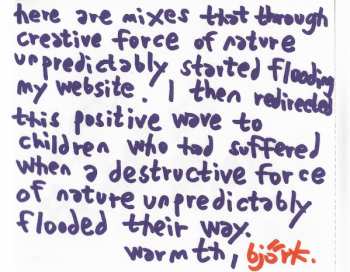 here are mixes that through
creative force of nature
unpredictably started flooding
my website. I then redirected
this positive wave to
children who had suffered
when a destructive force
of nature unpredictably
flooded their way.
warmth, björk.